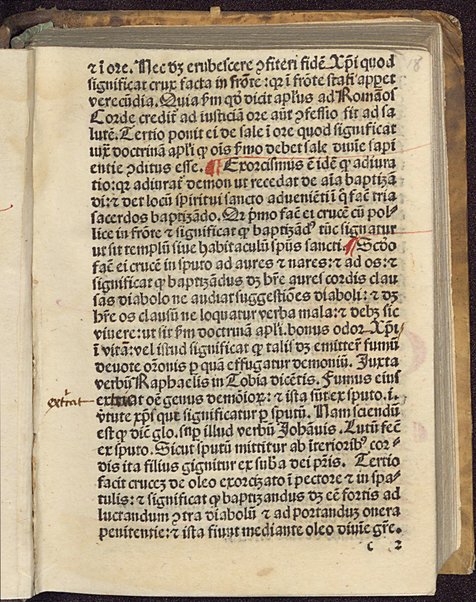 ⁊ ī ore. Nec dꝫ erubescere ꝯfiteri fidē Xp̄i quod
significat crux facta in frōte: qꝛ ī frōte stati apꝑet
verecūdia. Quia ẜm qd̓ dicit apl̓us ad Romāos
Corde credit̉ ad iusticiā ore aūt ꝯfessio fit ad sa
lutē. Tertio ponit ei de sale ī ore quod significat
doctrinā apl̓i ꝙ oīs ẜmo debet sale diuīe sapi
entie ꝯditus esse. ¶ Exorcismus ē idē ꝙ adiura
tio: qꝛ adiurat̉ demon ut recedat de aīa baptizā
di: ⁊ det locū spiritui sancto adueniēti ꝙ̄ faē tria
sacerdos baptizādo. Qꝛ p̓mo faē ei crucē cū pol-
lice in frōte ⁊ significat ꝙ baptizād̓ tūc signatur
ut sit templū siue habitaculū spūs sancti. ¶ Scd̓o
faē ei crucē in sputo ad aures ⁊ nares: ⁊ ad os: ⁊
significat ꝙ baptizādus dꝫ hr̄e aures cordis clau
sas diabolo ne audiat suggestiōes diaboli: ⁊ dꝫ
hr̄e os clausū ne loquatur verba mala: ⁊ debꝫ sic
viuere: ut sit ẜm doctrinā apl̓i. bonus odor Xp̄i
ī vita: vel istud significat ꝙ talis dꝫ emitter̄ fumū
deuote or̄onis ꝑ quā effugatur demoniū. Juxta
verbū Raphaelis in Tobia dicētis. Fumus eius
extrat
oē genus demōioꝝ: ⁊ ista sūt ex sputo. i.
v̓tute xp̄i que significatur ꝑ sputū. Nam sciendū
est ꝙ dīc glo. suꝑ illud verbū Joh̄anis. Lutū fec̄
ex sputo. Sicut sputū mittitur ab īteriorib̓ cor-
dis ita filius gignitur ex sub̄a dei pr̄is. Tertio
facit cruceꝫ de oleo exorcizato ī pectore ⁊ in spa-
tulis: ⁊ significat ꝙ baptizandus dꝫ eē fortis ad
luctandum ꝯtra diabolū ⁊ ad portanduꝫ onera
penitentie: ⁊ ista fiunt mediante oleo diuīe gr̄e.
c 2
18